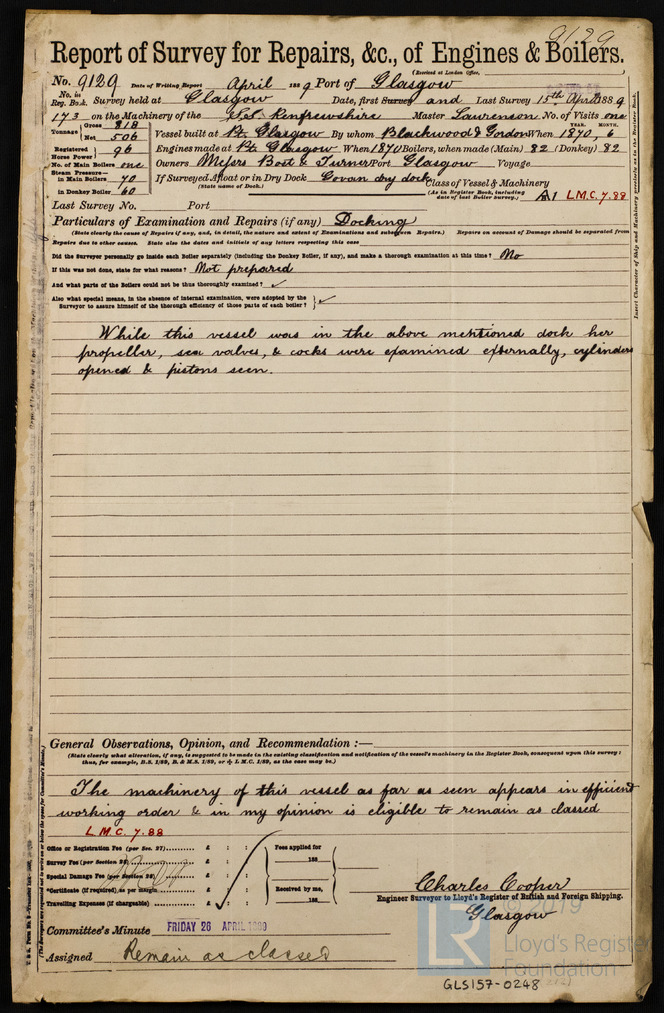 9129
Report of Survey for Repairs, &c., of Engines & Boilers.
(Received at London Office,
No. 9129 Date of Writing Report April 1889 Port of Glasgow
No. in Reg. Book. Survey held at Glasgow Date, first Survey and Last Survey 15th April 1889
173 on the Machinery of the S.S. Renfrewshire Master Laurenson No. of Visits one
Tonnage Gross 818 Net 506
Vessel built at Pt. Glasgow By whom Blackwood & Gordon When 1870, 6 YEAR. MONTH.
Registered Horse Power 96 Engines made at Pt. Glasgow When 1870 Boilers, when made (Main) 82 (Donkey) 82
No. of Main Boilers one Owners Messrs Bost & Turner Port Glasgow Voyage
Steam Pressure— in Main Boilers 70 If Surveyed Afloat or in Dry Dock Govan dry dock
(State name of Dock.)
in Donkey Boiler 60
Class of Vessel & Machinery
(As in Register Book, including date of last Boiler survey.) A1 L.M.C. 7.88
Last Survey No. Port
Particulars of Examination and Repairs (if any) Docking
(State clearly the cause of Repairs if any, and, in detail, the nature and extent of Examinations and subsequent Repairs.) Repairs on account of Damage should be separated from
Repairs due to other causes. State also the dates and initials of any letters respecting this case
Did the Surveyor personally go inside each Boiler separately (including the Donkey Boiler, if any), and make a thorough examination at this time? No
If this was not done, state for what reasons? Not prepared
And what parts of the Boilers could not be thoroughly examined? ✓
Also what special means, in the absence of internal examination, were adopted by the
Surveyor to assure himself of the thorough efficiency of those parts of each boiler? } ✓
While this vessel was in the above mentioned dock her
propeller, sea valves, & cocks were examined externally, cylinders
opened & pistons seen.
Insert Character of Ship and Machinery precisely as in the Register Book.
General Observations, Opinion, and Recommendation :—
(State clearly what alteration, if any, is suggested to be made in the existing classification and notification of the vessel's machinery in the Register Book, consequent upon this survey;
thus, for example, B.S. 1/89, B. & M.S. 1/89, or L M.C. 1/89, as the case may be.)
The machinery of this vessel as far as seen appears in efficient
working order & in my opinion is eligible to remain as classed
L.M.C. 7.88
Office or Registration Fee (per Sec. 27) £ : :
Survey Fee (per Section 28) £ : :
Special Damage Fee (per Section 28) £ : :
*Certificate (if required) as per margin £ : :
Travelling Expenses (if chargeable) £ : :
Fees applied for
188
Received by me,
188
Charles Cooper
Engineer Surveyor to Lloyd's Register of British and Foreign Shipping.
Glasgow
Committee's Minute FRIDAY 26 APRIL 1889
Assigned Remain as classed
© 2019
LR
Lloyd's Register
Foundation
GLS157-0248